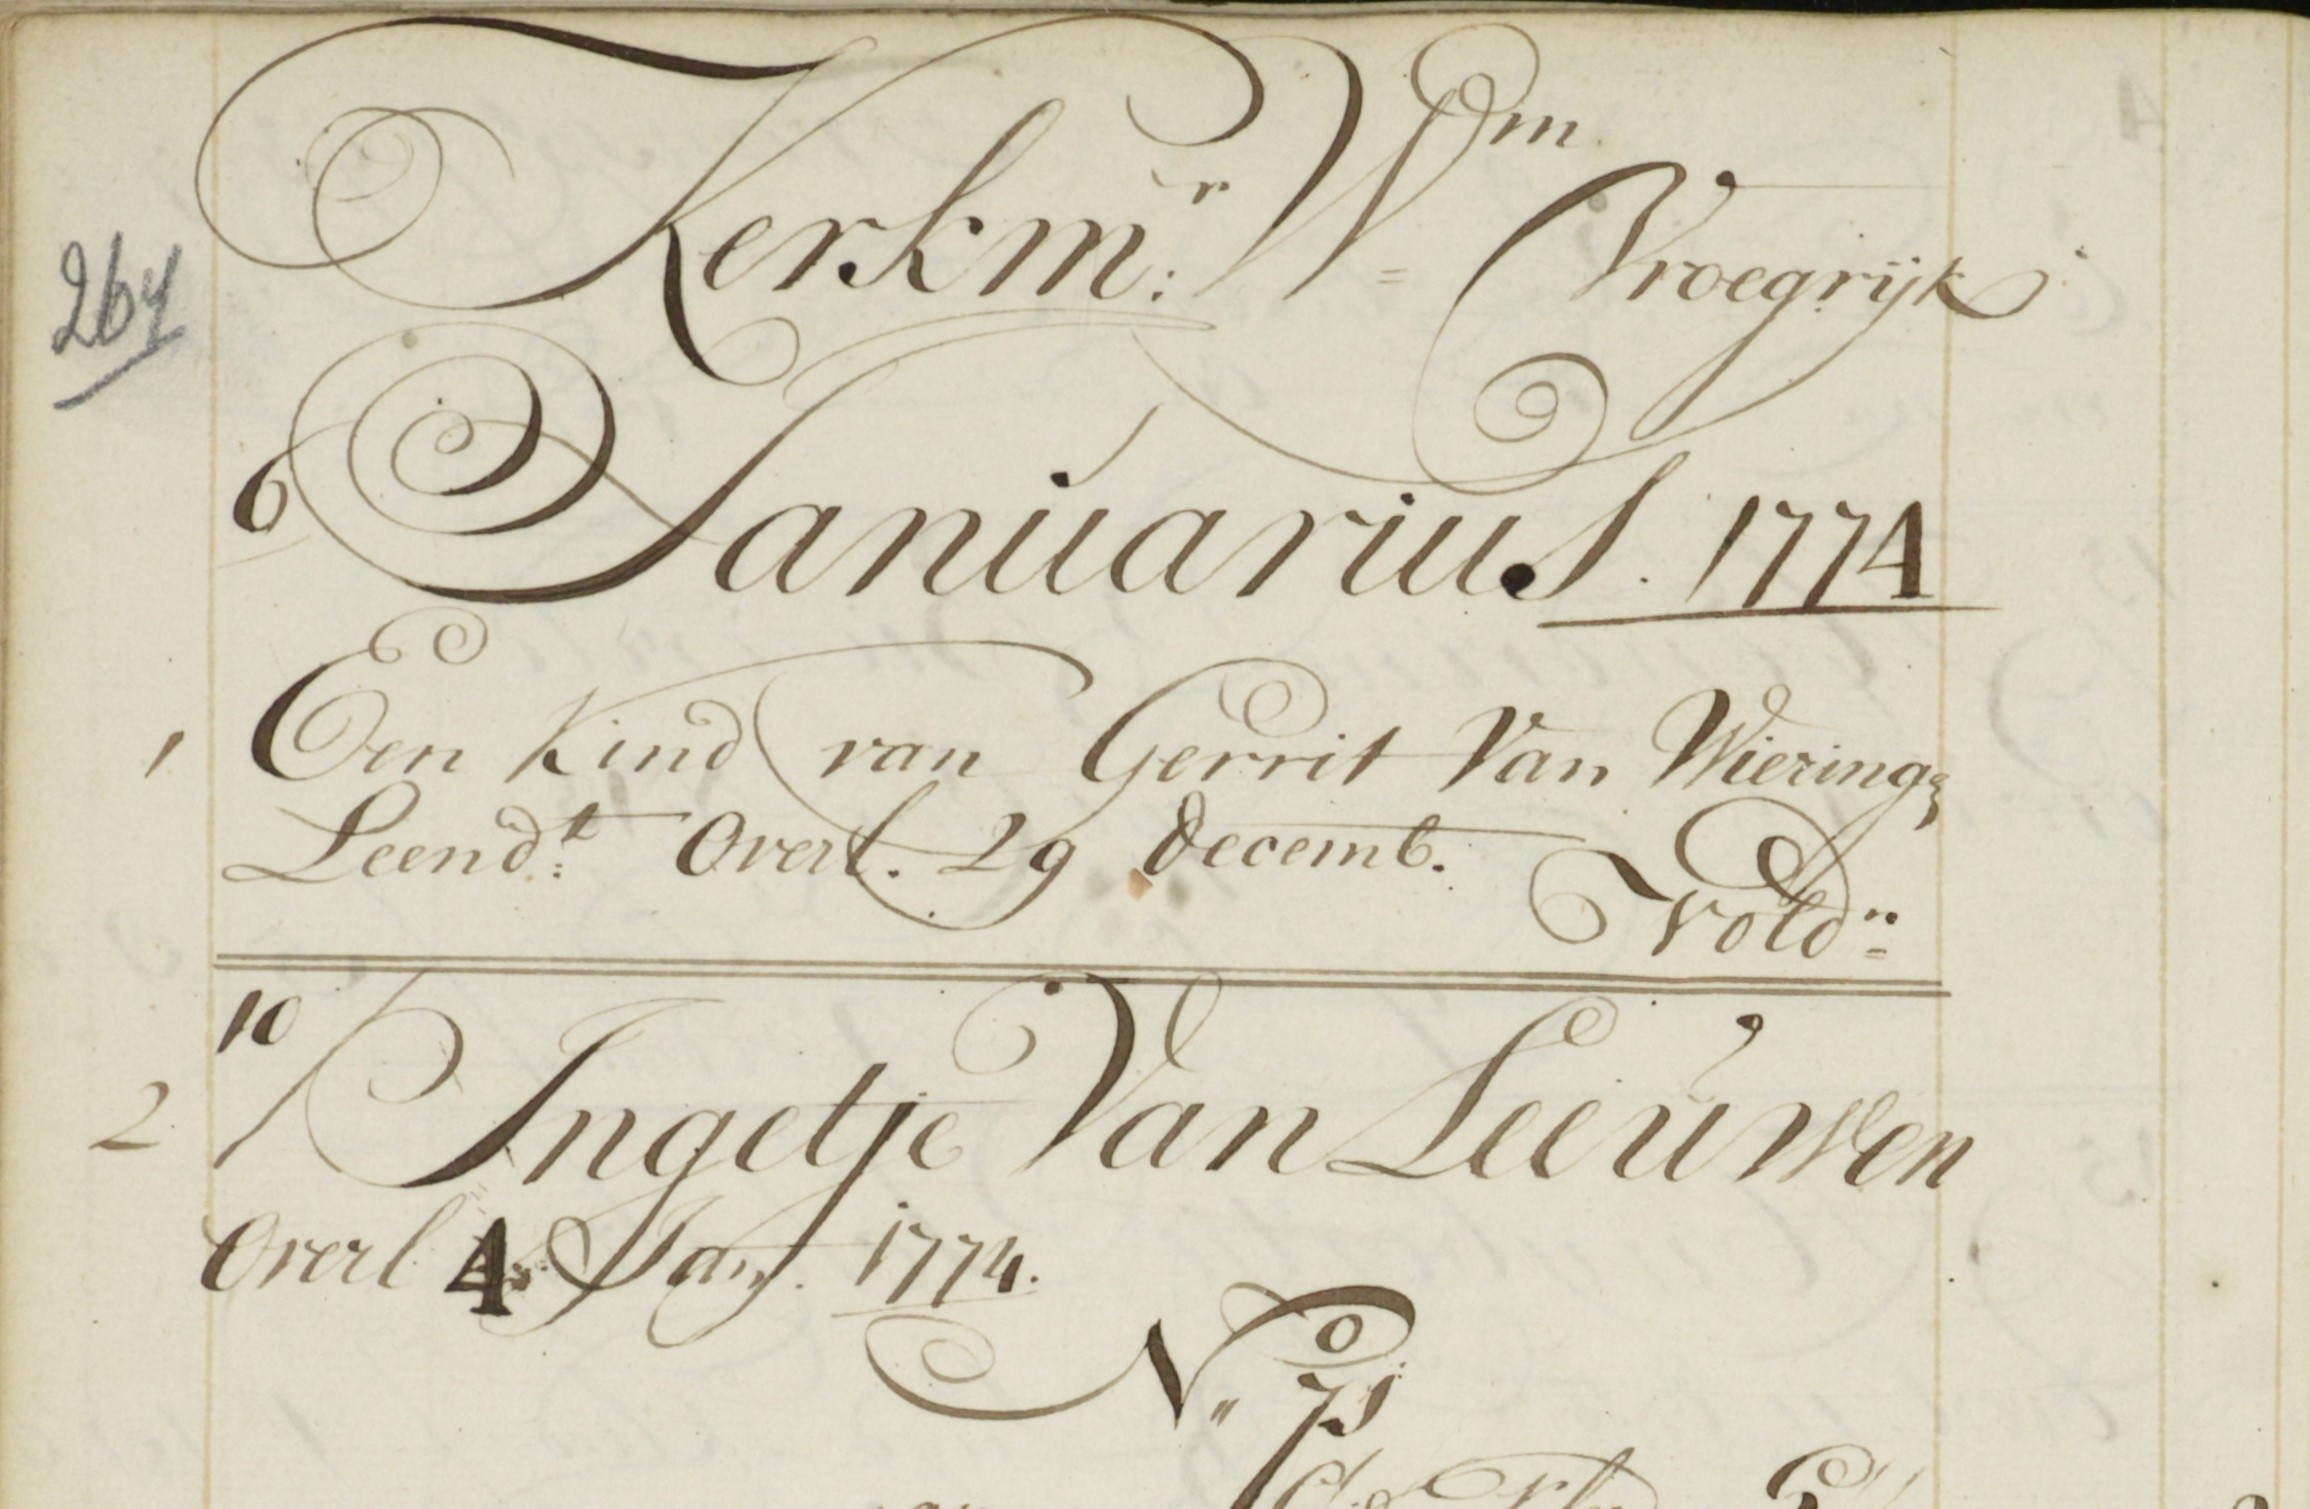 Kerkm:r Wm= Vroegrijk
264
6 Januarius. 1774
1 Een Kind van Gerrit Van Wiering
Leend:t Overl. 29 Decemb.
Vold:n
10
2 Ingetje Van Leeuwen
Overl 4 Jan. 1774.
No 71